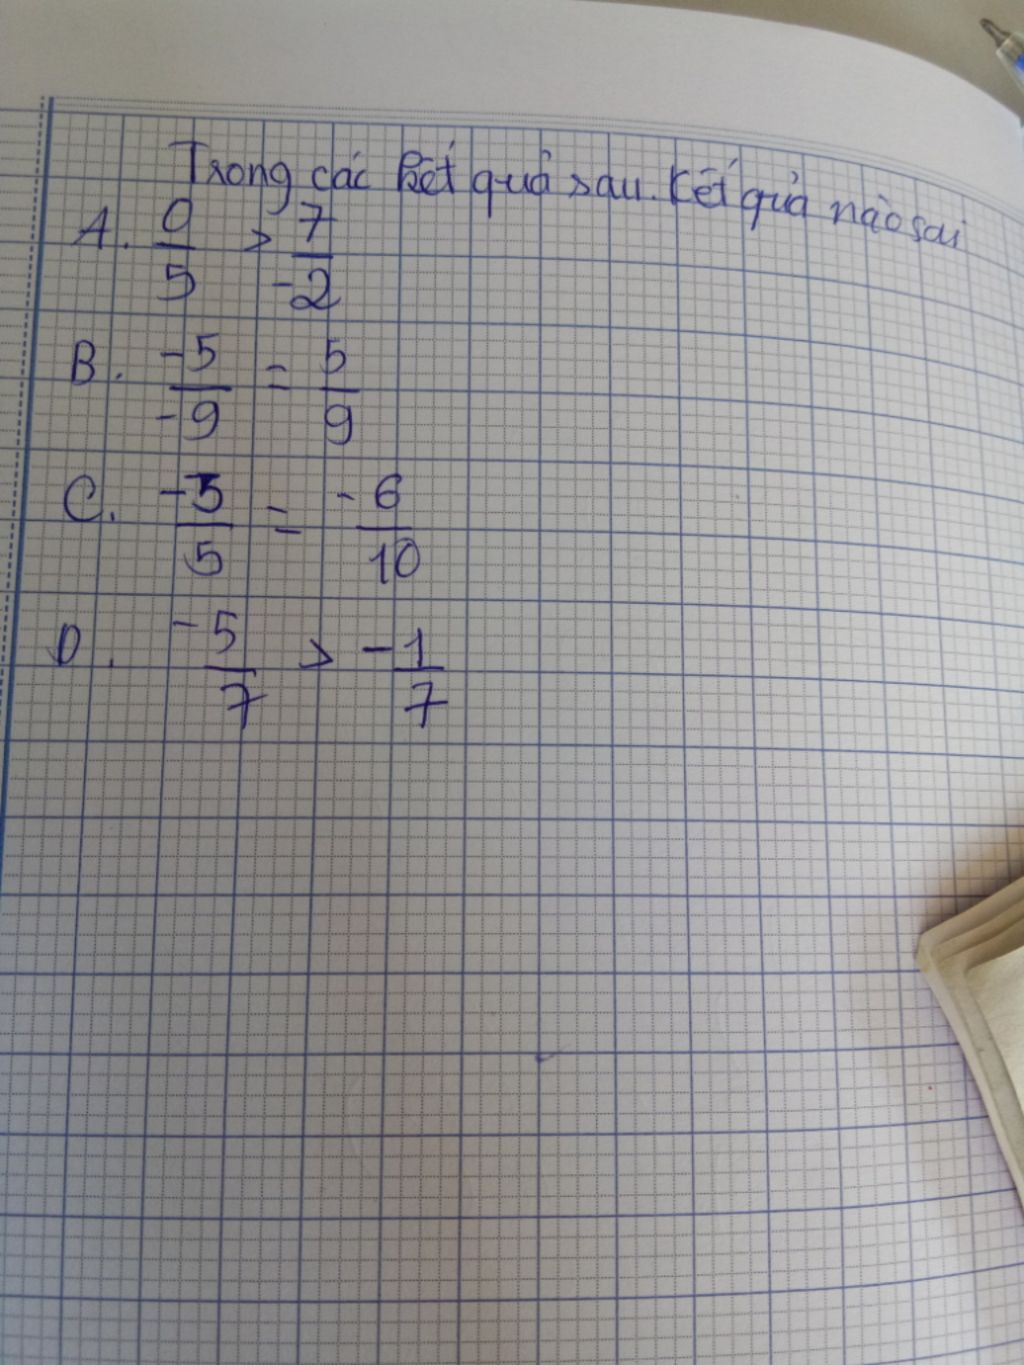 Trong các kết quả sau. Kết quả nào sai
A. 0/5 > 7/-2
B. -5/-9 = 5/9
C. -3/5 = -6/10
D. -5/7 > -1/7